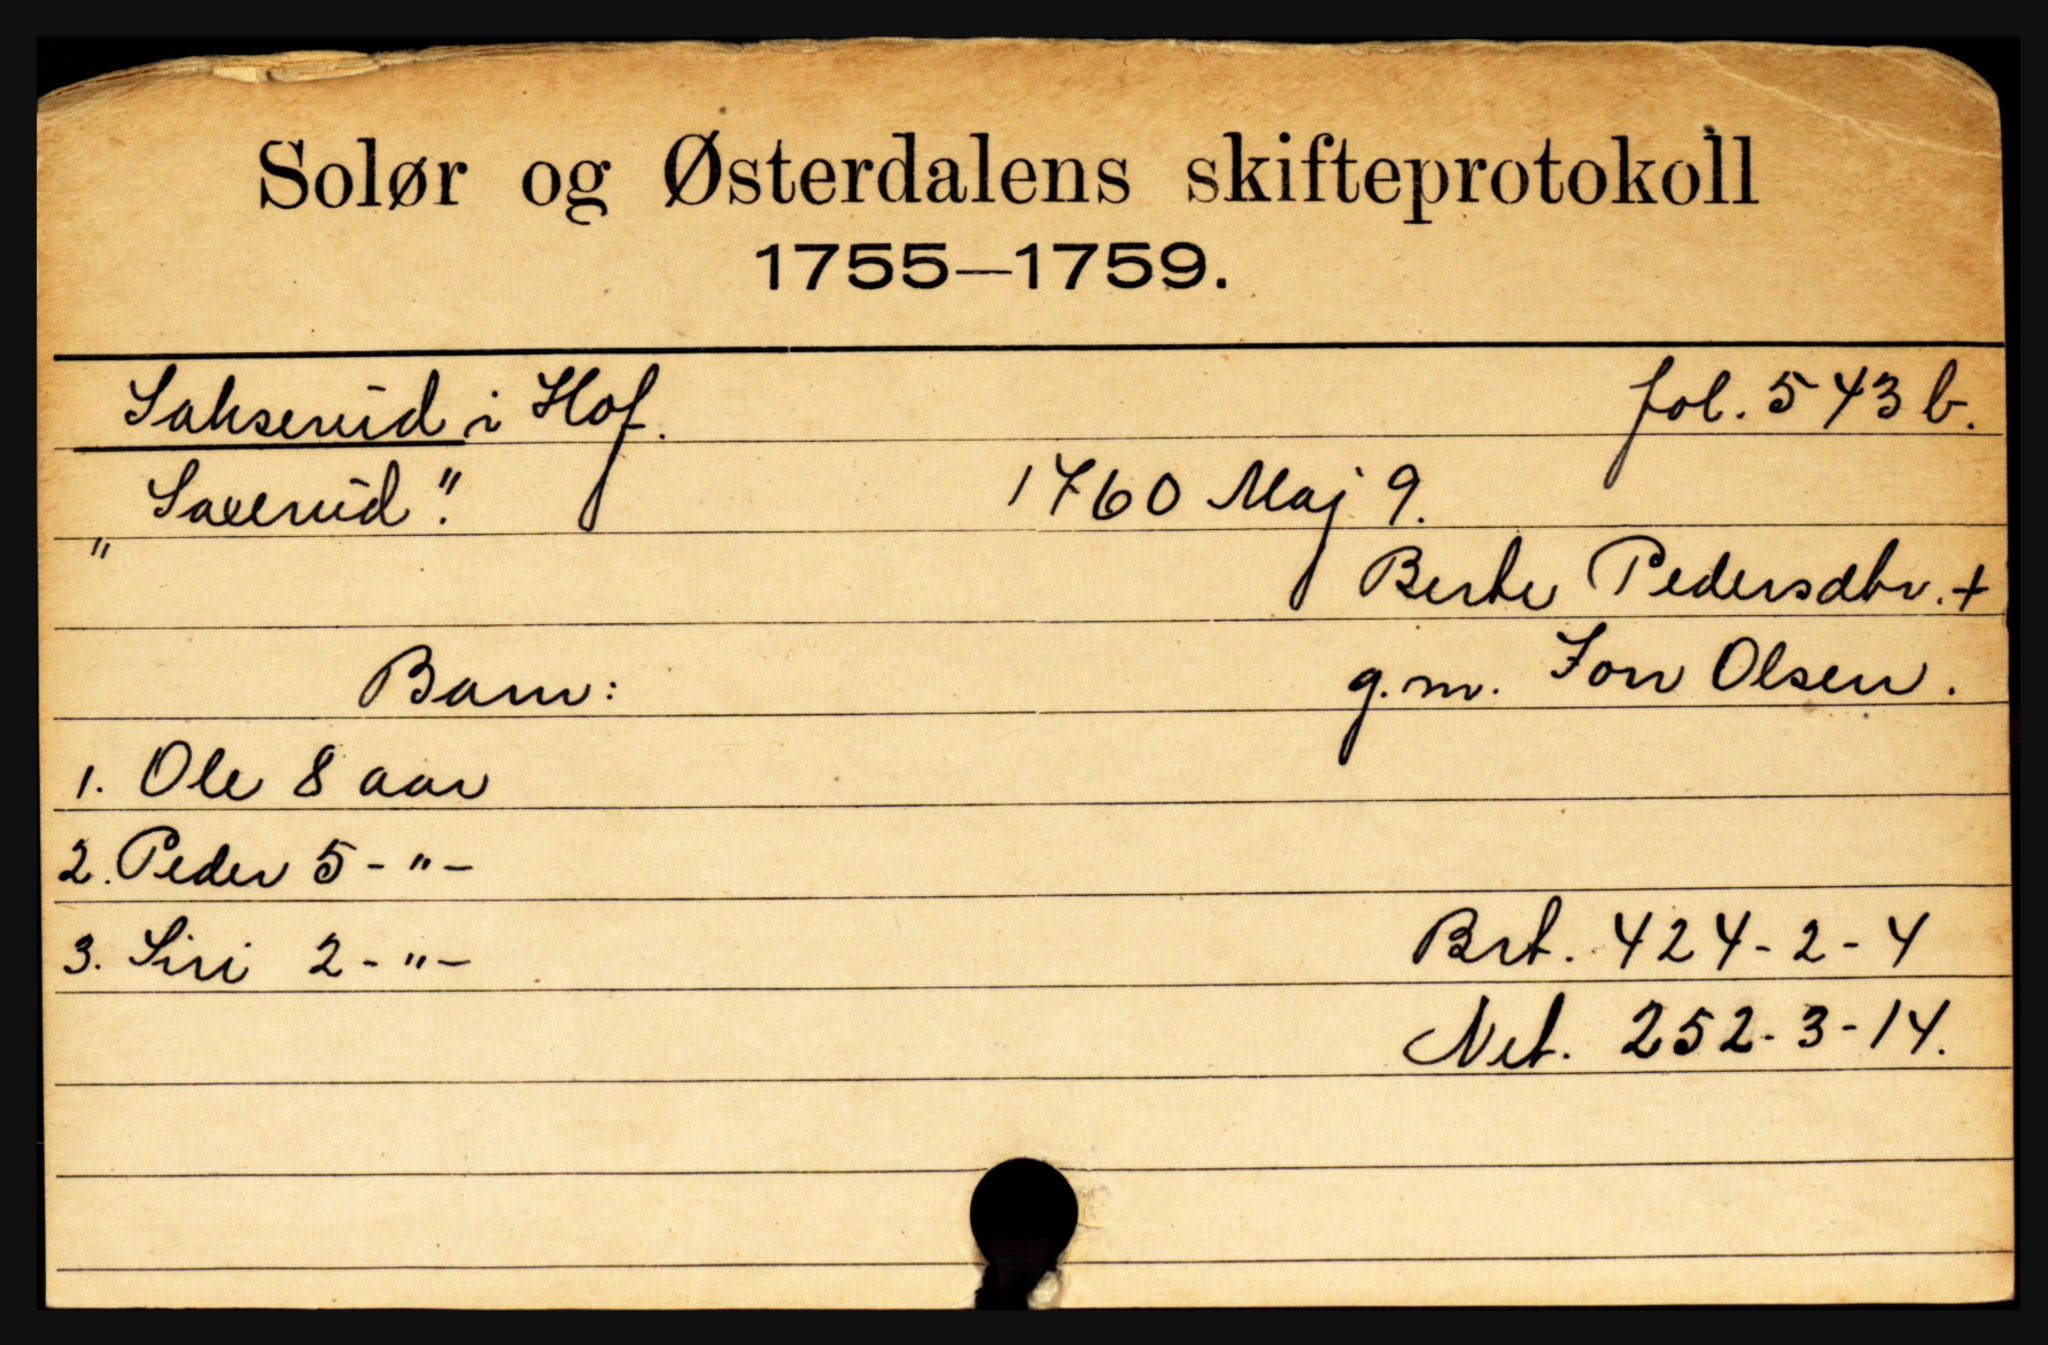 Solør og Østerdalens skifteprotokoll
1755—1759.
Sakserud i Hof. fol. 543 b.
" Saxerud". 1760 Maj 9.
Berte Pedersdtr. +
Barn: g.m. Jon Olsen.
1. Ole 8 aar
2. Peder 5 - " -
3. Siri 2 - " - Brt. 424 - 2 - 4
Net. 252 - 3 - 14.